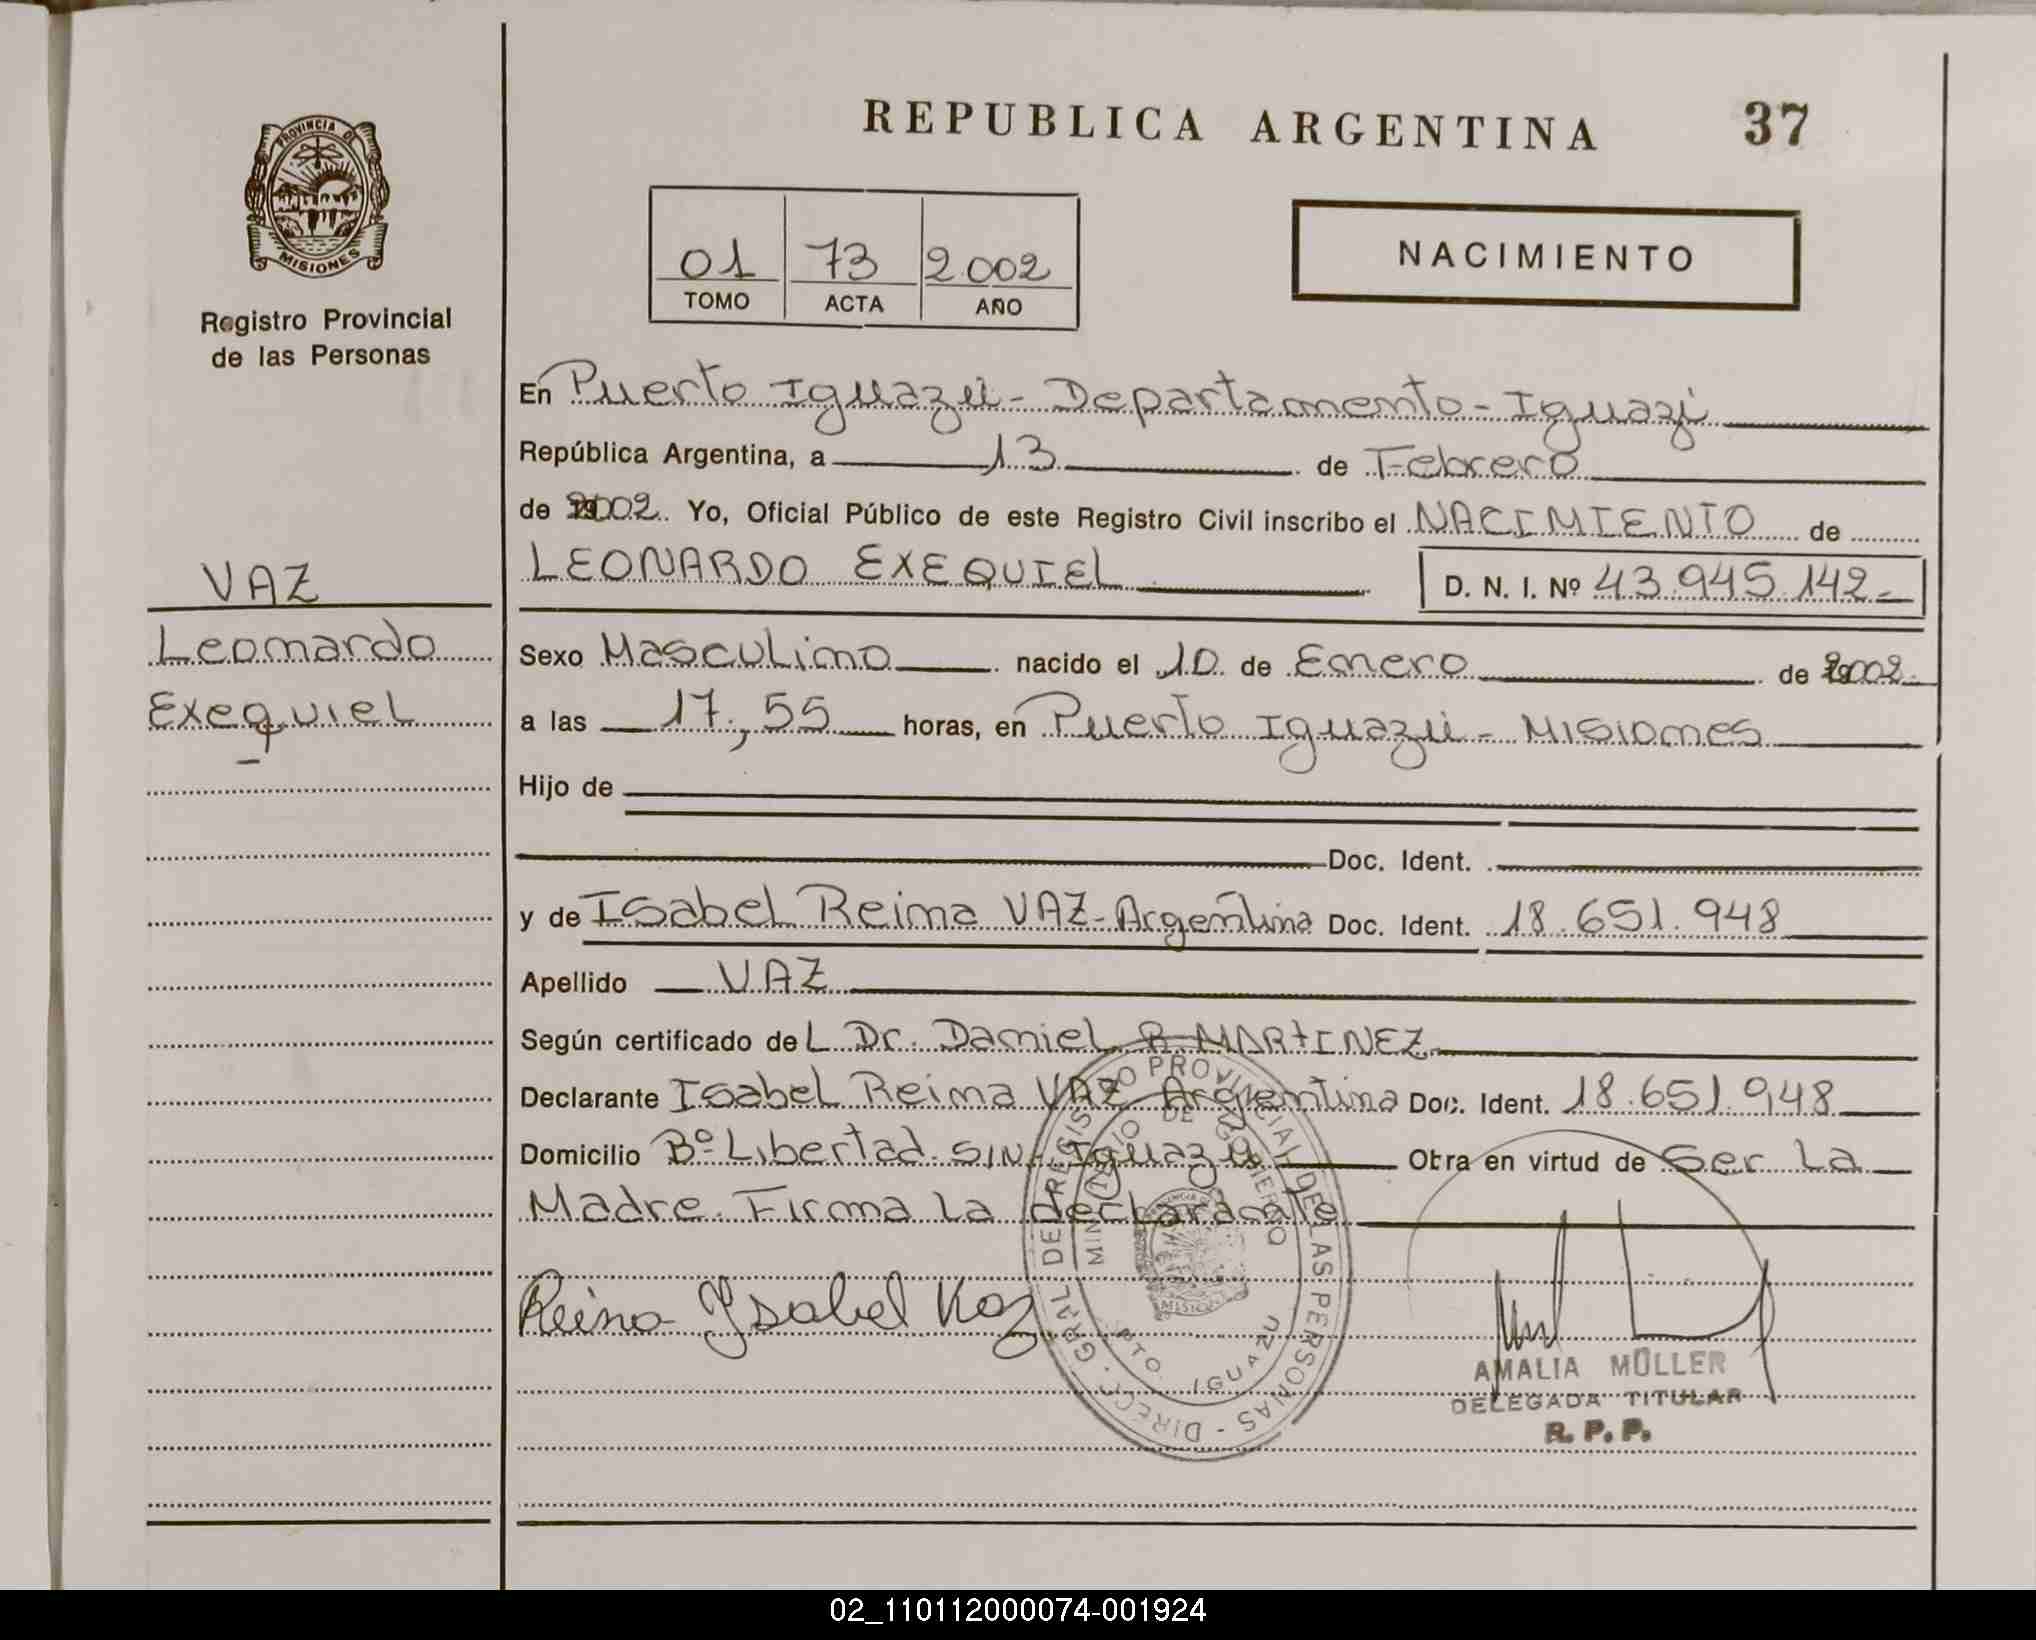 REPUBLICA ARGENTINA 37
PROVINCIA DE
MISIONES
Registro Provincial
de las Personas
01 73 2.002
TOMO ACTA AÑO
NACIMIENTO
En Puerto Iguazú - Departamento - Iguazú
República Argentina, a 13 de Febrero
de 2002. Yo, Oficial Público de este Registro Civil inscribo el NACIMIENTO de
VAZ
Leonardo
Exequiel
LEONARDO EXEQUIEL D. N. I. Nº 43.945.142-
Sexo Masculino nacido el 10 de Enero de 2002.
a las 17,55 horas, en Puerto Iguazú - Misiones
Hijo de
Doc. Ident.
y de Isabel Reina VAZ - Argentina Doc. Ident. 18.651.948
Apellido VAZ
Según certificado del Dr. Daniel R. MARTINEZ
Declarante Isabel Reina VAZ Argentina Doc. Ident. 18.651.948
Domicilio Bº Libertad S/N - Iguazú Obra en virtud de Ser La
Madre. Firma La declarante
Reina Ysabel Vaz
DIRECC. GRAL. DE REGISTRO PROVINCIAL DE LAS PERSONAS -
MINISTERIO DE GOBIERNO
PTO. IGUAZU
AMALIA MÜLLER
DELEGADA TITULAR
R. P. P.
02_110112000074-001924